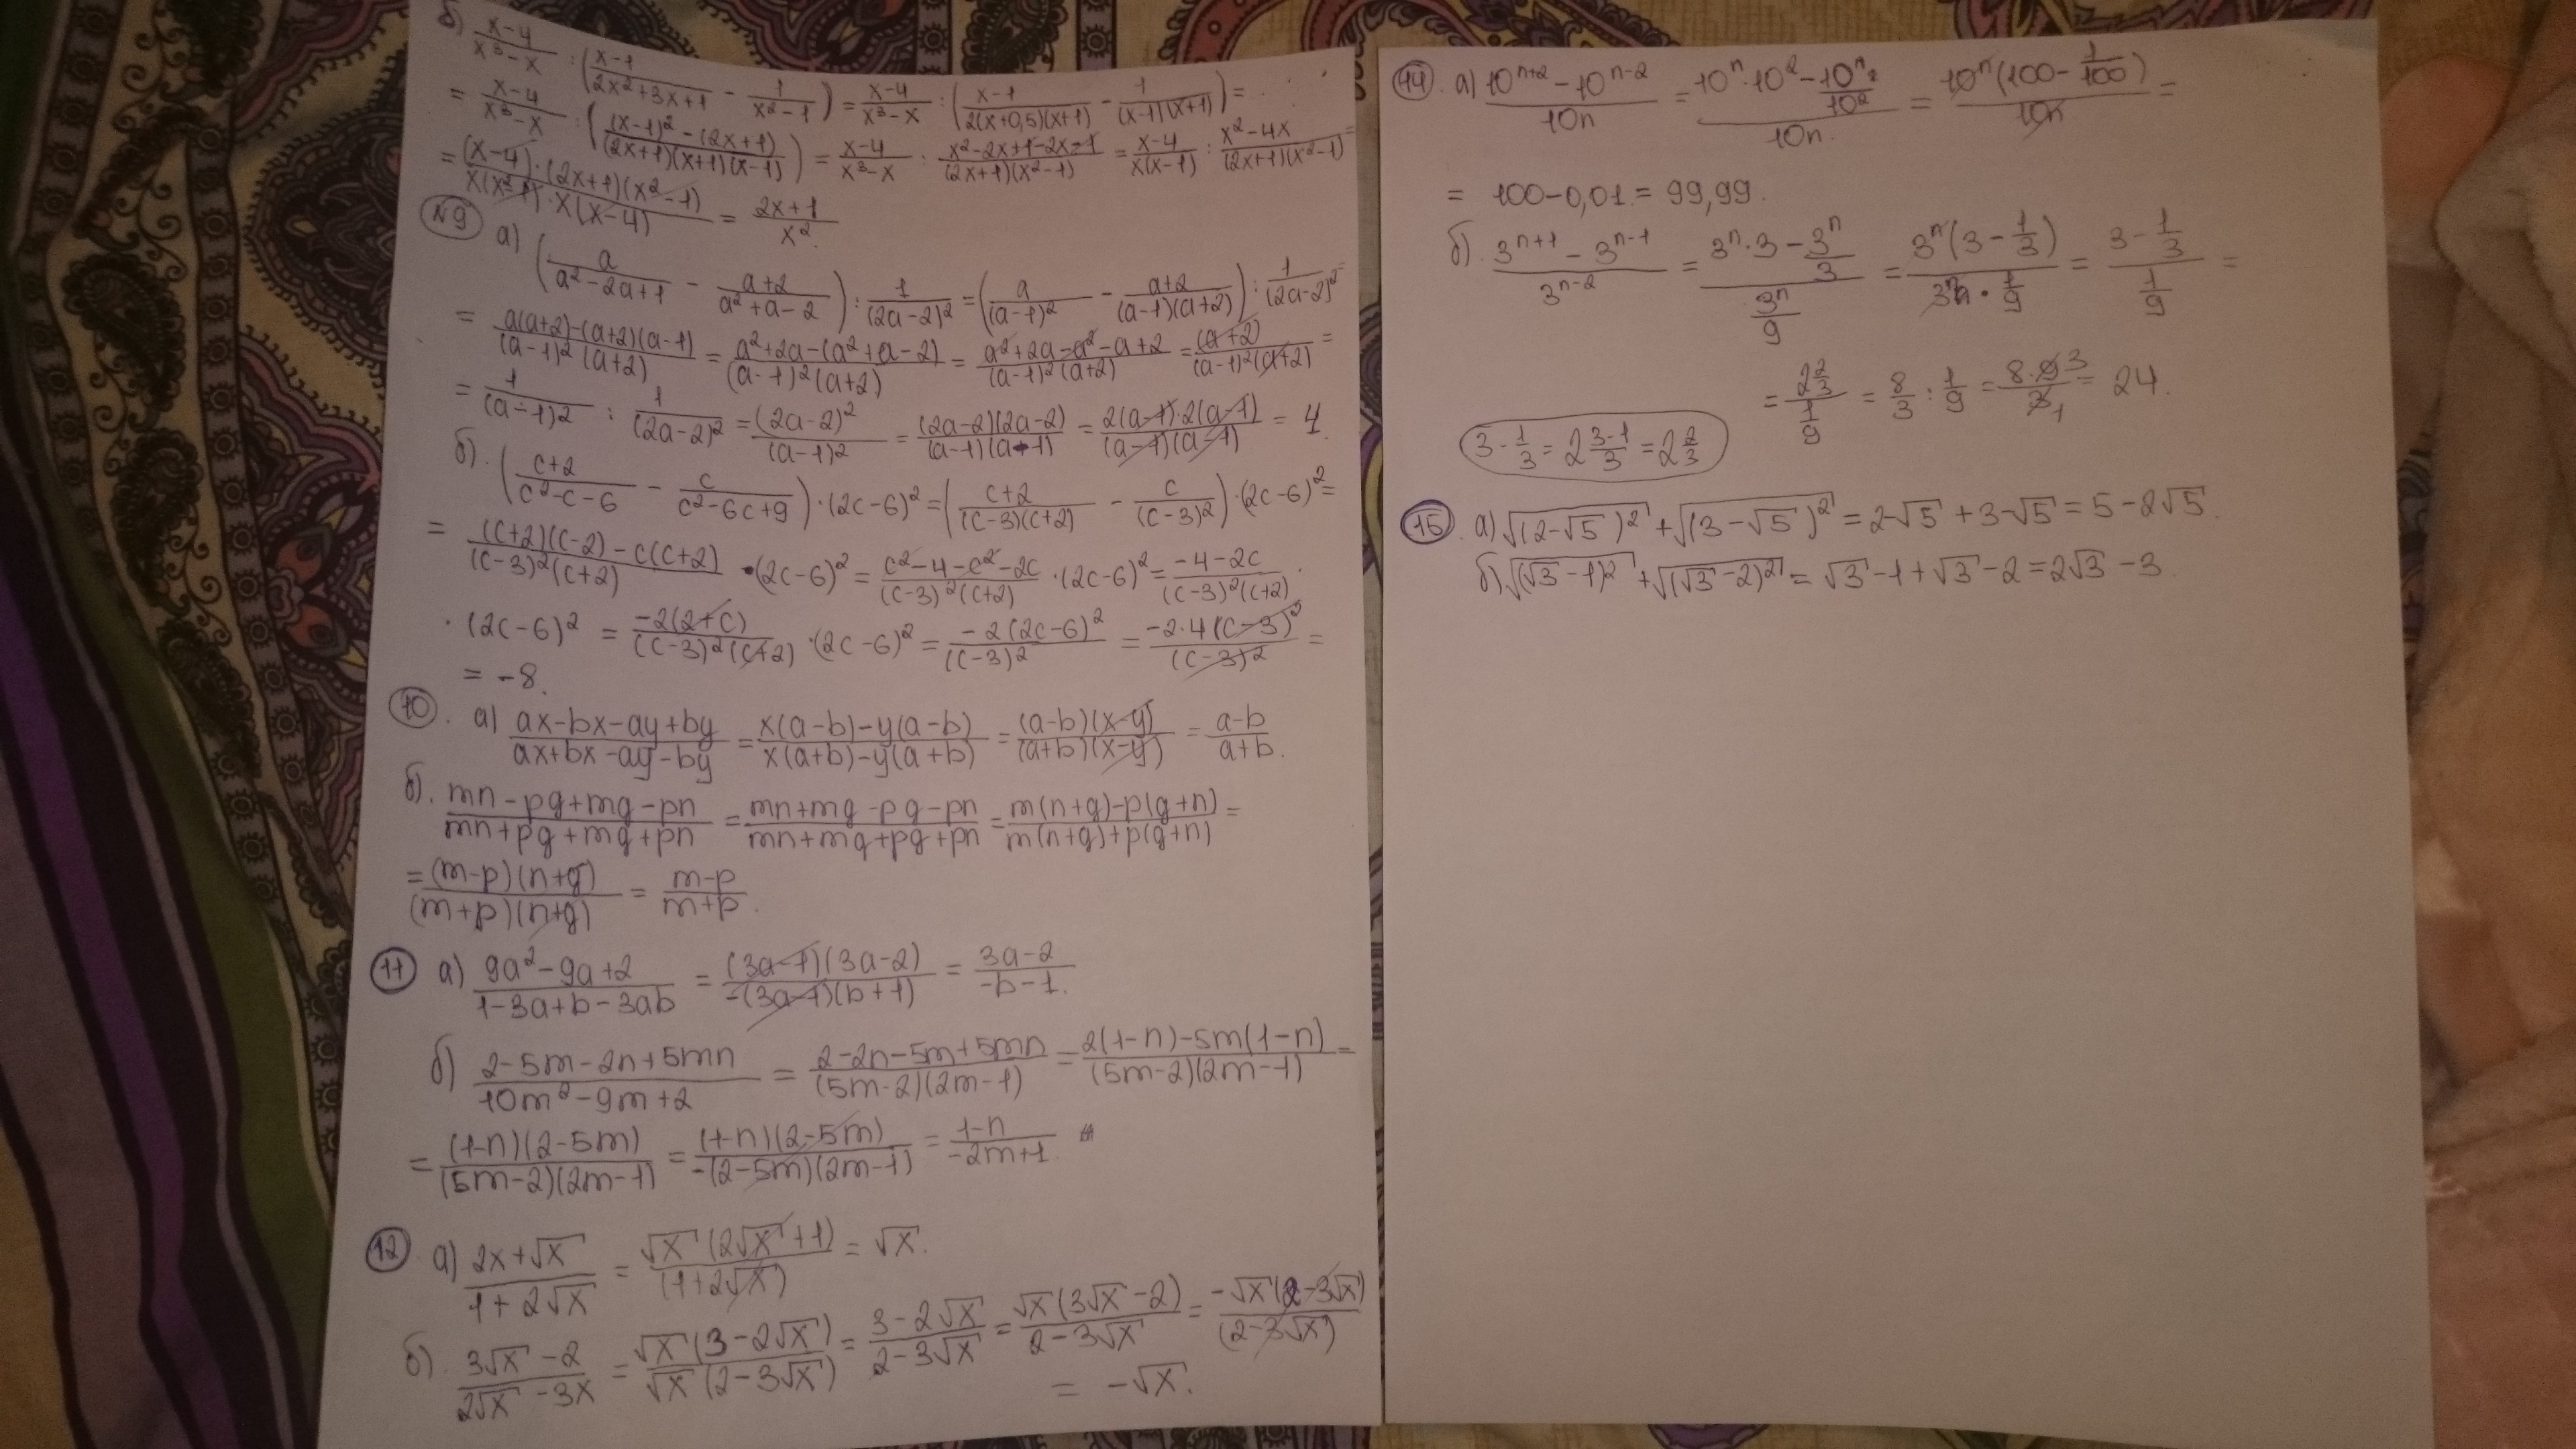 б) \frac{x-4}{x^3-x} : (\frac{x-1}{2x^2+3x+1} - \frac{1}{x^2-1}) = \frac{x-4}{x^3-x} : (\frac{x-1}{2(x+0,5)(x+1)} - \frac{1}{(x-1)(x+1)}) =
= \frac{x-4}{x^3-x} : (\frac{(x-1)^2-(2x+1)}{(2x+1)(x+1)(x-1)}) = \frac{x-4}{x^3-x} : \frac{x^2-2x+1-2x-1}{(2x+1)(x^2-1)} = \frac{x-4}{x(x-1)} : \frac{x^2-4x}{(2x+1)(x^2-1)} =
= \frac{(x-4)·(2x+1)(x^2-1)}{x(x^2-1)·x(x-4)} = \frac{2x+1}{x^2}.
N9 а) (\frac{a}{a^2-2a+1} - \frac{a+2}{a^2+a-2}) : \frac{1}{(2a-2)^2} = (\frac{a}{(a-1)^2} - \frac{a+2}{(a-1)(a+2)}) : \frac{1}{(2a-2)^2} =
= \frac{a(a+2)-(a+2)(a-1)}{(a-1)^2(a+2)} = \frac{a^2+2a-(a^2+a-2)}{(a-1)^2(a+2)} = \frac{a^2+2a-a^2-a+2}{(a-1)^2(a+2)} = \frac{(a+2)}{(a-1)^2(a+2)} =
= \frac{1}{(a-1)^2} : \frac{1}{(2a-2)^2} = \frac{(2a-2)^2}{(a-1)^2} = \frac{(2a-2)(2a-2)}{(a-1)(a-1)} = \frac{2(a-1)·2(a-1)}{(a-1)(a-1)} = 4.
б). (\frac{c+2}{c^2-c-6} - \frac{c}{c^2-6c+9})·(2c-6)^2 = (\frac{c+2}{(c-3)(c+2)} - \frac{c}{(c-3)^2})·(2c-6)^2 =
= \frac{(c+2)(c-2)-c(c+2)}{(c-3)^2(c+2)}·(2c-6)^2 = \frac{c^2-4-c^2-2c}{(c-3)^2(c+2)}·(2c-6)^2 = \frac{-4-2c}{(c-3)^2(c+2)}·
·(2c-6)^2 = \frac{-2(2+c)}{(c-3)^2(c+2)}·(2c-6)^2 = \frac{-2(2c-6)^2}{(c-3)^2} = \frac{-2·4(c-3)^2}{(c-3)^2} =
= -8.
10. а) \frac{ax-bx-ay+by}{ax+bx-ay-by} = \frac{x(a-b)-y(a-b)}{x(a+b)-y(a+b)} = \frac{(a-b)(x-y)}{(a+b)(x-y)} = \frac{a-b}{a+b}.
б). \frac{mn-pg+mg-pn}{mn+pg+mg+pn} = \frac{mn+mg-pg-pn}{mn+mg+pg+pn} = \frac{m(n+g)-p(g+n)}{m(n+g)+p(g+n)} =
= \frac{(m-p)(n+g)}{(m+p)(n+g)} = \frac{m-p}{m+p}.
11 а) \frac{9a^2-9a+2}{1-3a+b-3ab} = \frac{(3a-1)(3a-2)}{-(3a-1)(b+1)} = \frac{3a-2}{-b-1}.
б) \frac{2-5m-2n+5mn}{10m^2-9m+2} = \frac{2-2n-5m+5mn}{(5m-2)(2m-1)} = \frac{2(1-n)-5m(1-n)}{(5m-2)(2m-1)} =
= \frac{(1-n)(2-5m)}{(5m-2)(2m-1)} = \frac{(1-n)(2-5m)}{-(2-5m)(2m-1)} = \frac{1-n}{-2m+1}.
12. а) \frac{2x+√x}{1+2√x} = \frac{√x(2√x+1)}{(1+2√x)} = √x.
б). \frac{3√x-2}{2√x-3x} = \frac{√x(3-2√x)}{√x(2-3√x)} = \frac{3-2√x}{2-3√x} = \frac{√x(3√x-2)}{2-3√x} = \frac{-√x(2-3√x)}{(2-3√x)}
= -√x.
14. а) \frac{10^{n+2}-10^{n-2}}{10n} = \frac{10^n·10^2-\frac{10^n}{10^2}}{10n.} = \frac{10^n(100-\frac{1}{100})}{10n} =
= 100-0,01 = 99,99.
б). \frac{3^{n+1}-3^{n-1}}{3^{n-2}} = \frac{3^n·3-\frac{3^n}{3}}{\frac{3^n}{9}} = \frac{3^n(3-\frac{1}{3})}{3^n·\frac{1}{9}} = \frac{3-\frac{1}{3}}{\frac{1}{9}} =
= \frac{2\frac{2}{3}}{\frac{1}{9}} = \frac{8}{3} : \frac{1}{9} = \frac{8·9 3}{3 1} = 24.
3-\frac{1}{3} = 2\frac{3-1}{3} = 2\frac{2}{3}
15. а) √(2-√5)^2 + √(3-√5)^2 = 2-√5+3-√5 = 5-2√5.
б) √(√3-1)^2 + √(√3-2)^2 = √3-1+√3-2 = 2√3-3.